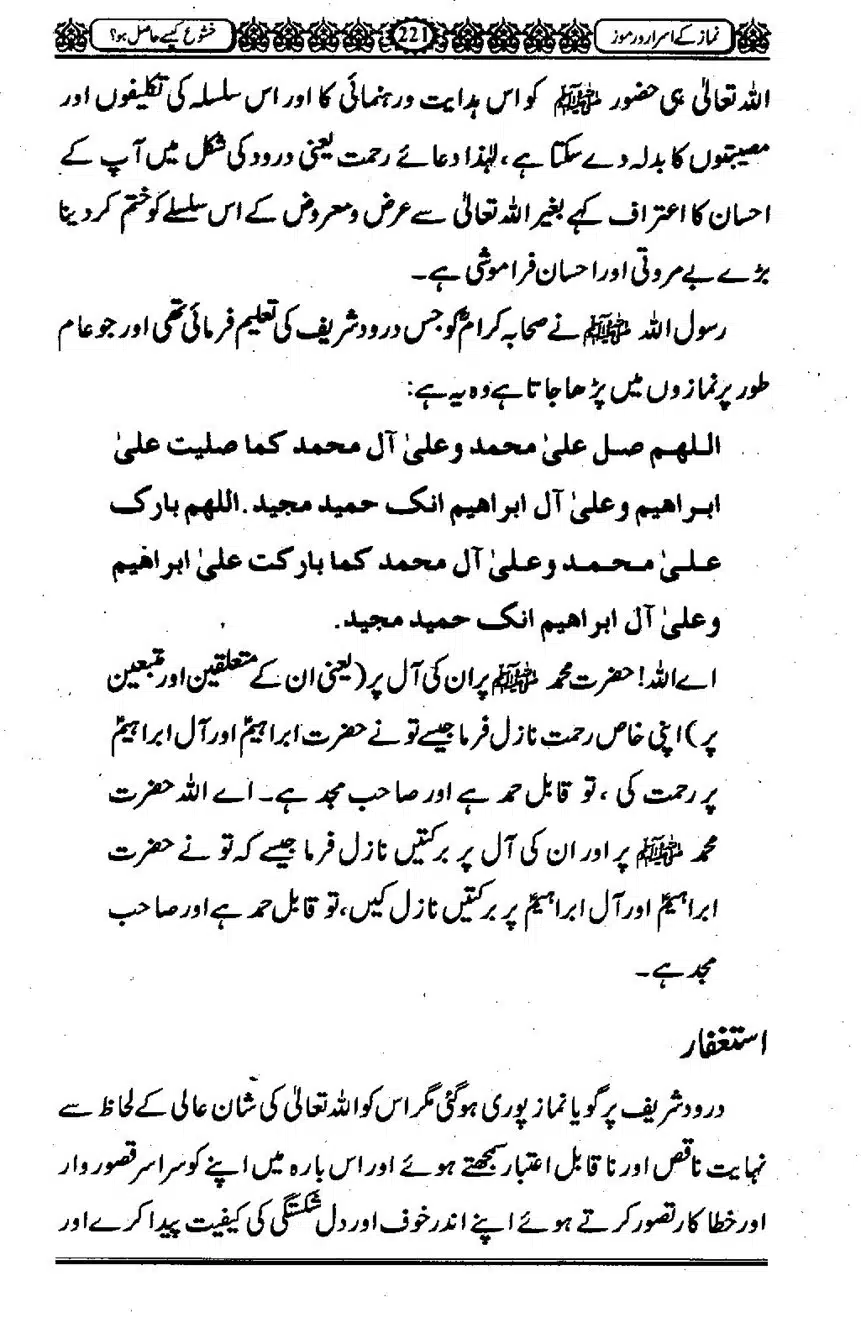 نماز کے اسرار و رموز 221 خشوع کیسے حاصل ہو؟
اللہ تعالیٰ ہی حضور ﷺ کو اس ہدایت و رہنمائی کا اور اس سلسلہ کی تکلیفوں اور
مصیبتوں کا بدلہ دے سکتا ہے، لہٰذا دعائے رحمت یعنی درود کی شکل میں آپ کے
احسان کا اعتراف کہے بغیر اللہ تعالیٰ سے عرض و معروض کے اس سلسلے کو ختم کر دینا
بڑے بے مروتی اور احسان فراموشی ہے۔
رسول اللہ ﷺ نے صحابہ کرامؓ کو جس درود شریف کی تعلیم فرمائی تھی اور جو عام
طور پر نمازوں میں پڑھا جاتا ہے وہ یہ ہے:
اللهم صل علیٰ محمد وعلیٰ آل محمد کما صلیت علیٰ
ابراهیم وعلیٰ آل ابراهیم انک حمید مجید. اللهم بارک
علیٰ محمد وعلیٰ آل محمد کما بارکت علیٰ ابراهیم
وعلیٰ آل ابراهیم انک حمید مجید.
اے اللہ! حضرت محمد ﷺ پر ان کی آل پر (یعنی ان کے متعلقین اور متبعین
پر) اپنی خاص رحمت نازل فرما جیسے تو نے حضرت ابراہیمؑ اور آل ابراہیمؑ
پر رحمت کی، تو قابل حمد ہے اور صاحب مجد ہے۔ اے اللہ حضرت
محمد ﷺ پر اور ان کی آل پر برکتیں نازل فرما جیسے کہ تو نے حضرت
ابراہیمؑ اور آل ابراہیمؑ پر برکتیں نازل کیں، تو قابل حمد ہے اور صاحب
مجد ہے۔
استغفار
درود شریف پر گویا نماز پوری ہو گئی مگر اس کو اللہ تعالیٰ کی شان عالی کے لحاظ سے
نہایت ناقص اور نا قابل اعتبار سمجھتے ہوئے اور اس بارہ میں اپنے کو سراسر قصور وار
اور خطا کار تصور کرتے ہوئے اپنے اندر خوف اور دل شکستگی کی کیفیت پیدا کرے اور